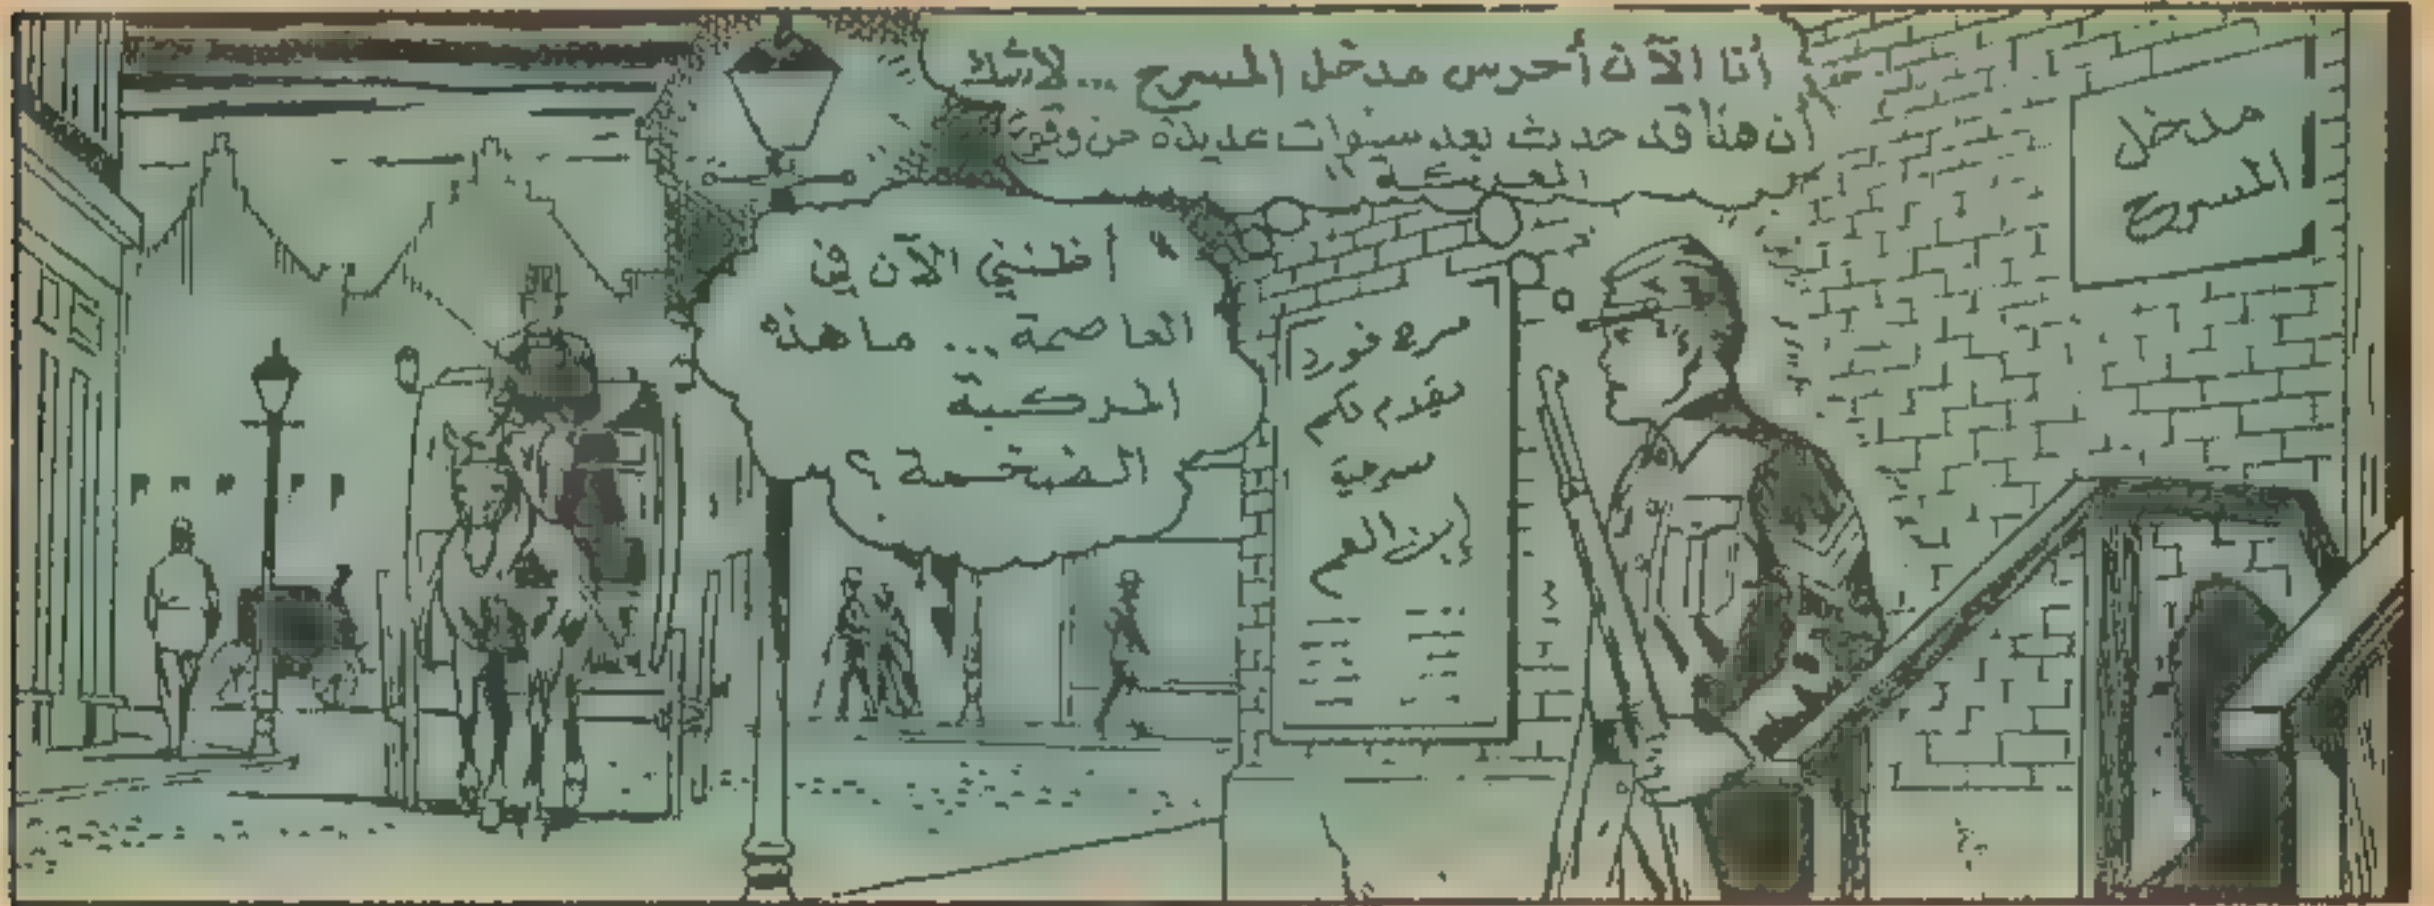 أنا الآن أحرس مدخل المسرح ... لاشك
أن هذا قد حدث بعد سنوات عديدة من وقوع
المعركة !!
أظنني الآن في
العاصمة ... ما هذه
المركبة
الضخمة ؟
مسرح فورد
يقدم لكم
مسرحية
إبن العم
مدخل
المسرح